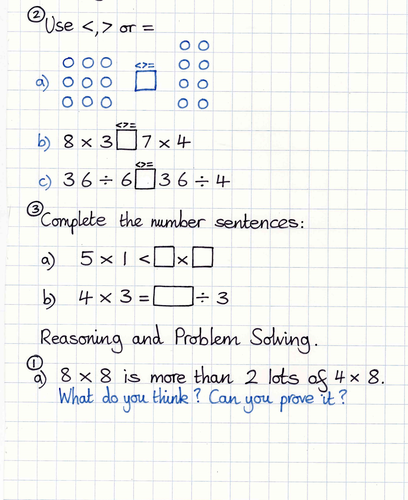 ② Use <, > or =
a) <>=
b) 8 × 3 <>= 7 × 4
c) 36 ÷ 6 <>= 36 ÷ 4
③ Complete the number sentences:
a) 5 × 1 < □ × □
b) 4 × 3 = □ ÷ 3
Reasoning and Problem Solving.
① a) 8 × 8 is more than 2 lots of 4 × 8.
What do you think? Can you prove it?